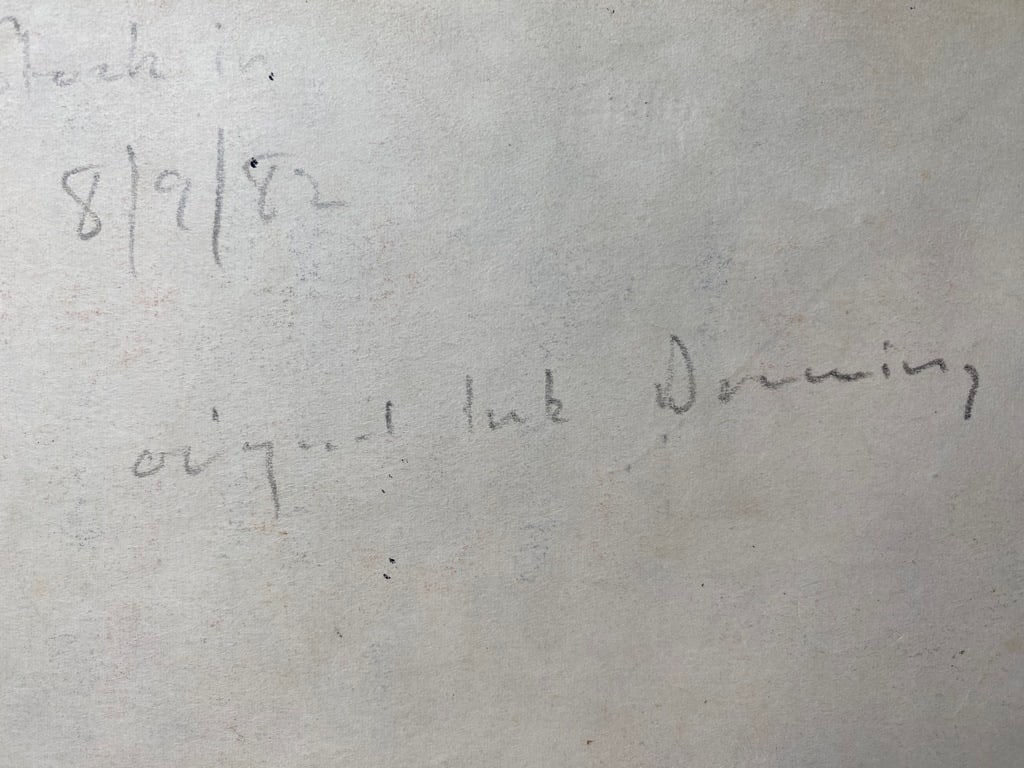 Stock in
8/9/82
original Ink Drawing